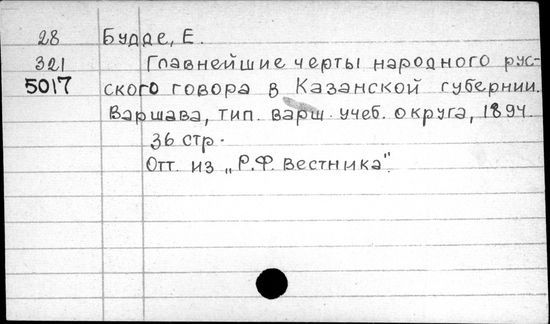 28 Будде, Е.
321 Главнейшие черты народного рус-
5017 ского говора в Казанской губернии.
Варшава, тип. варш. учеб. округа, 1894.
36 стр.
Отт. из „Р.Ф. Вестника".